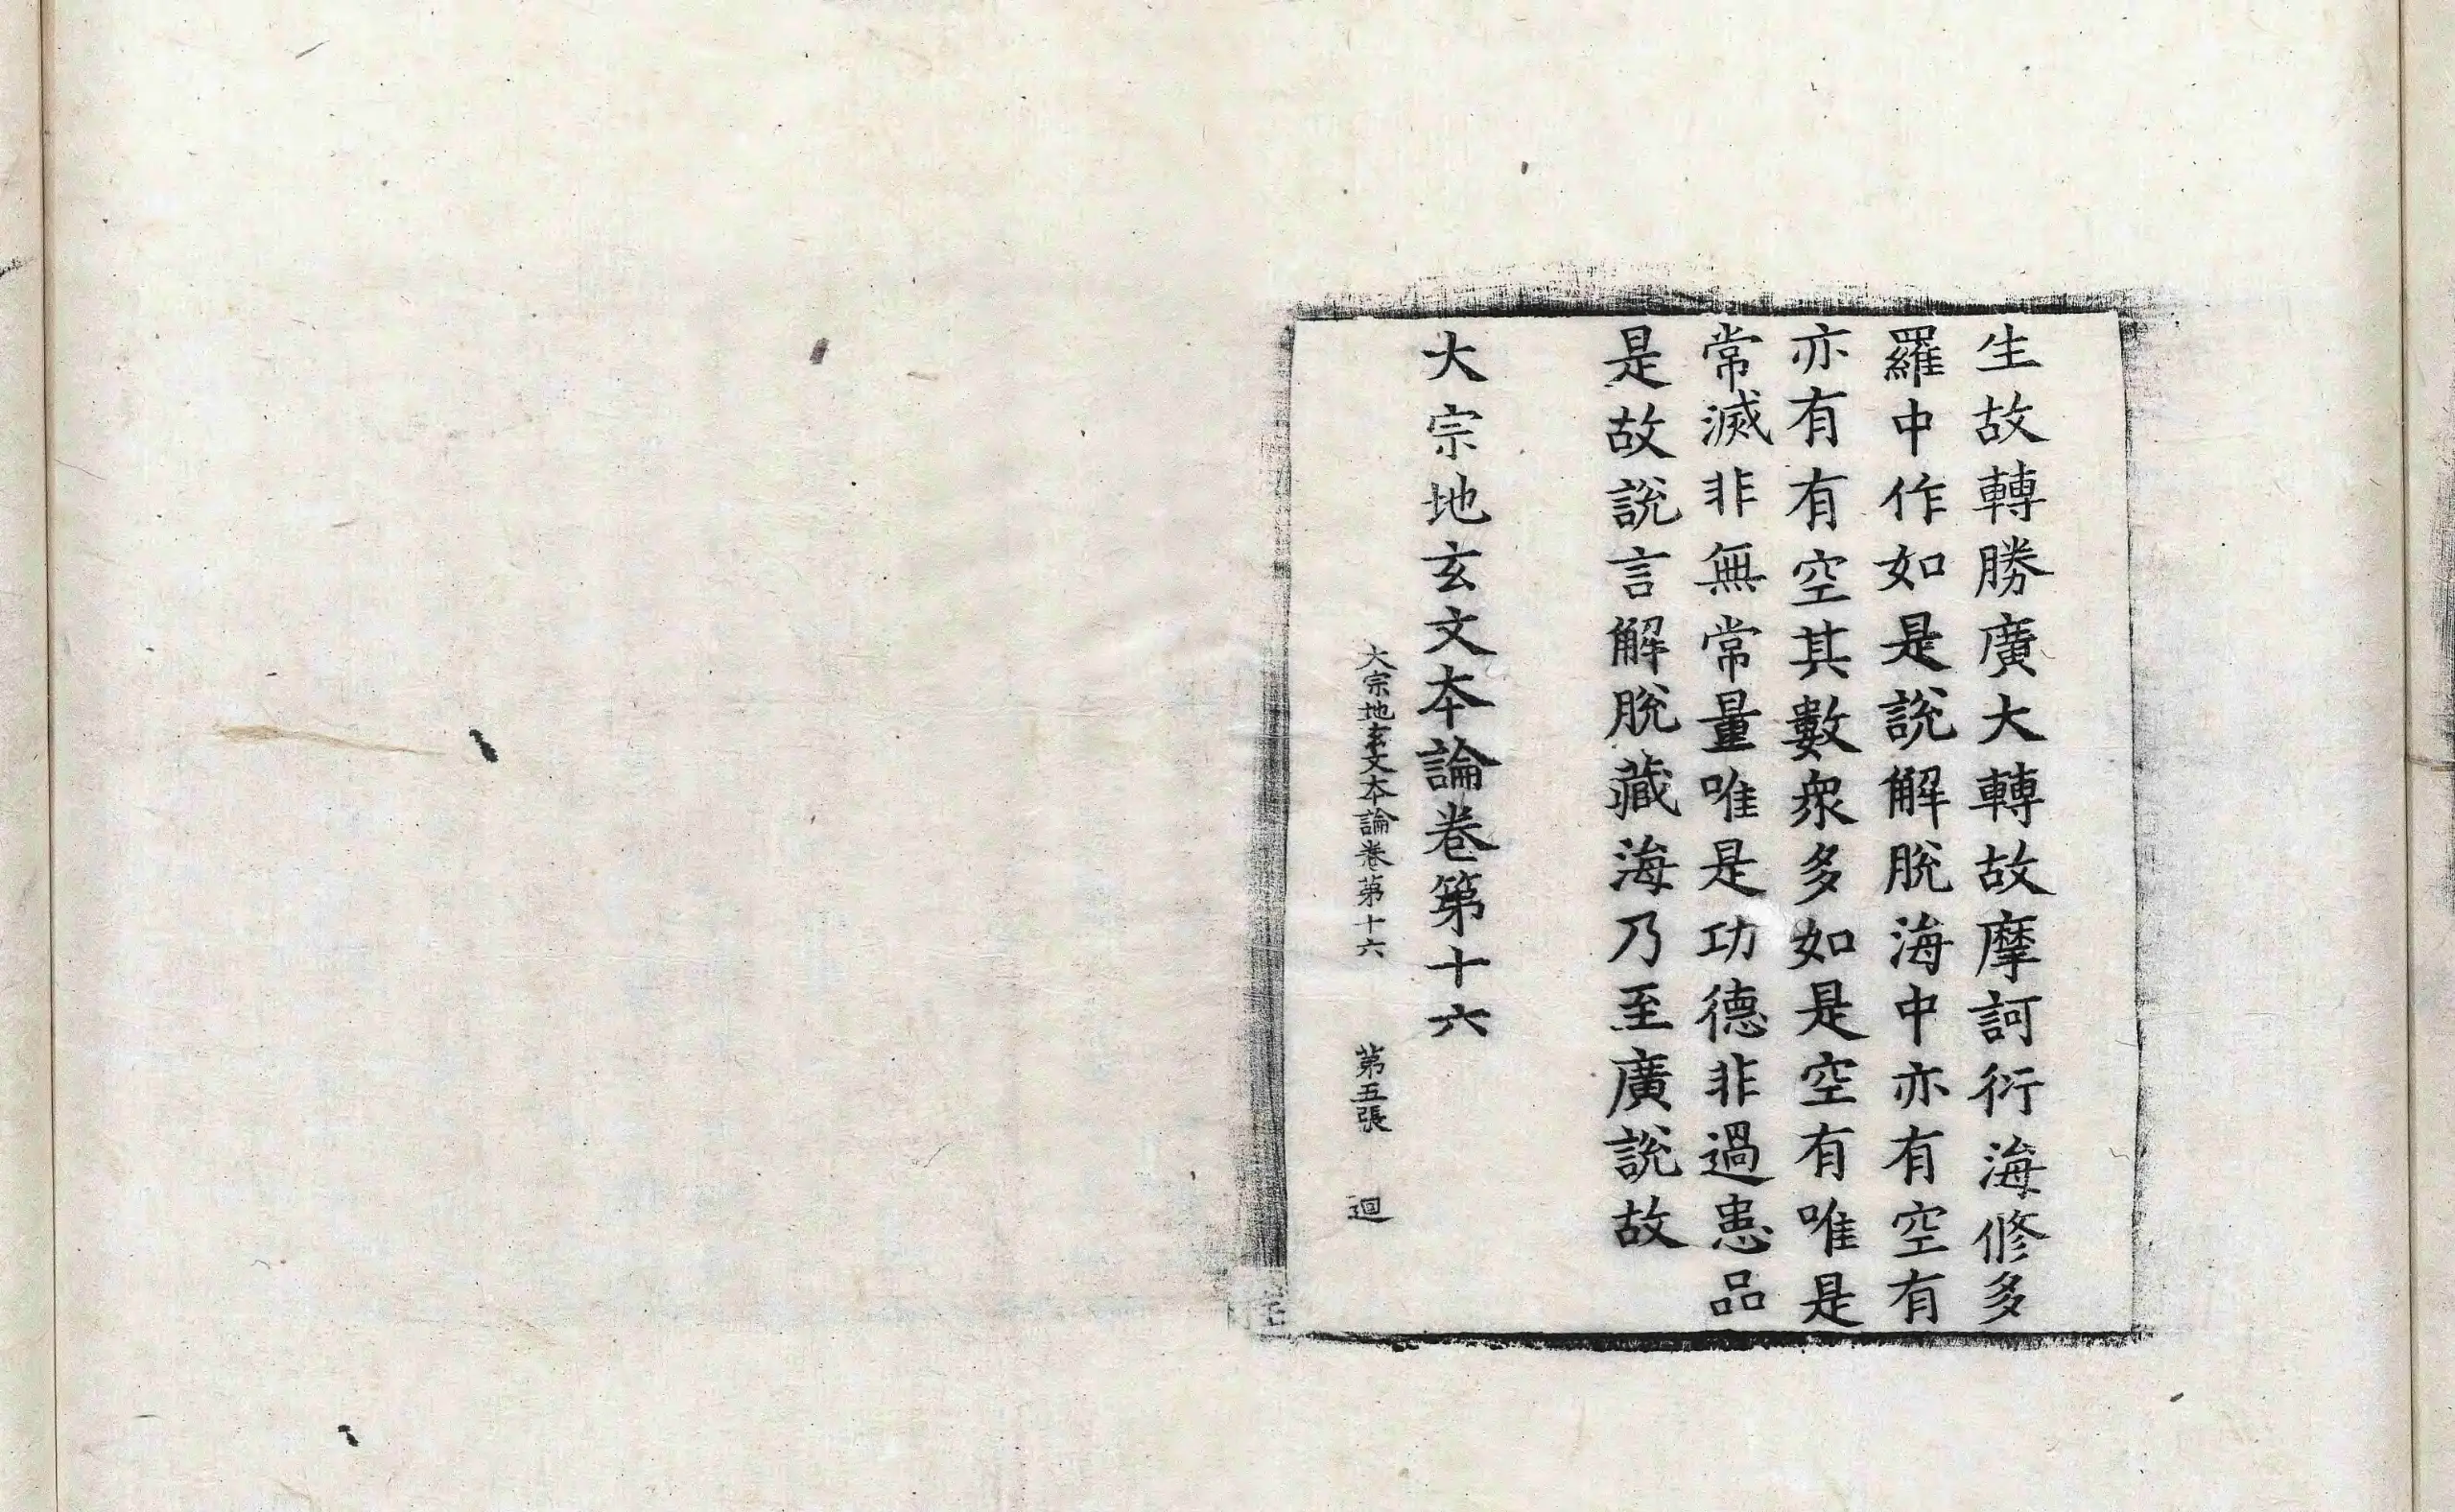 生故轉勝廣大轉故摩訶衍海修多
羅中作如是說解脫海中亦有空有
亦有有空其數衆多如是空有唯是
常滅非無常量唯是功德非過患品
是故說言解脫藏海乃至廣說故
大宗地玄文本論卷第十六
大宗地玄文本論卷第十六 第五張 迴